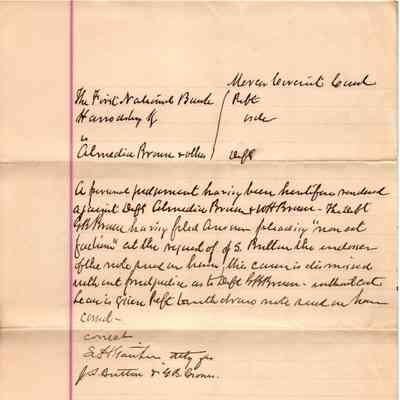 Mercer Circuit Court
The First National Bank Plff
Harrodsburg Ky
vs
Almedia Brown & others Deft
A personal judgment having been heretofore rendered
against Defts Almedia Brown & WH Brown - The Deft
GB Brown having filed Answer pleading "non est
factum" at the request of J S. Button the endorser
of the note sued on herein this cause is dismissed
without prejudice as to Deft GB Brown - without cost
Leave is given Plff to withdraw note sued on
correct
atty for
J. S. Button & G B Brown.